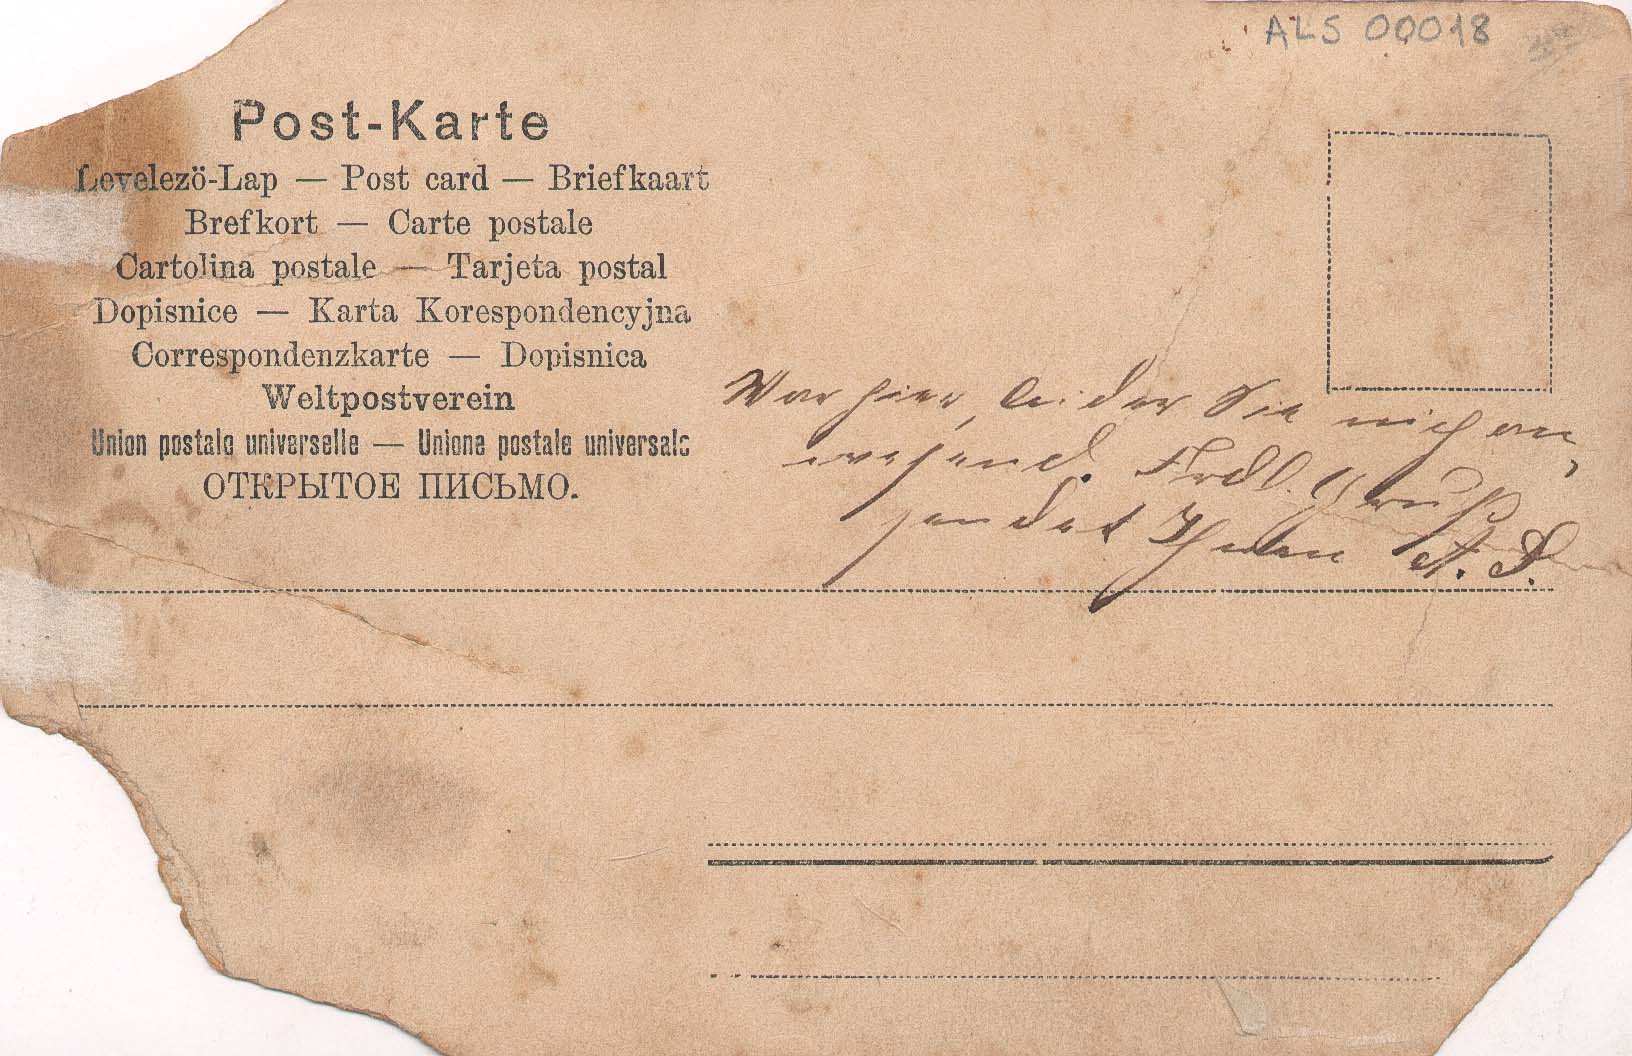 ALS 00018
Post-Karte
Levelezö-Lap — Post card — Briefkaart
Brefkort — Carte postale
Cartolina postale — Tarjeta postal
Dopisnice — Karta Korespondencyjna
Correspondenzkarte — Dopisnica
Weltpostverein
Union postale universelle — Unione postale universale
ОТКРЫТОЕ ПИСЬМО.
War hier, leider Sie nich an
wesend. Frdl. Gruß
sendet Ihnen A. S.